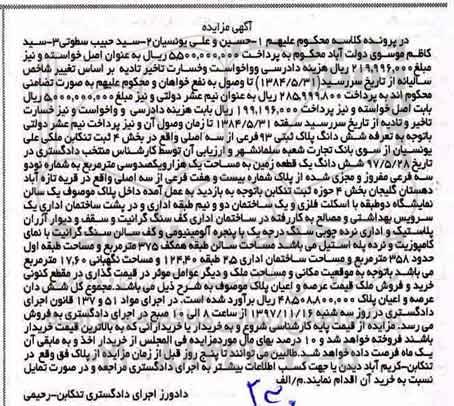 آگهی مزایده
در پرونده کلاسه محکوم علیهم ۱-حسین و علی یونسیان۲-سید حبیب سطوتی۳-سید
کاظم موسوی دولت آباد محکوم به پرداخت ۵٬۵۰۰٬۰۰۰٬۰۰۰ ریال به عنوان اصل خواسته و نیز
مبلغ ۲۱۹٬۹۹۶٬۰۰۰ ریال هزینه دادرسی وواخواست وخسارت تاخیر تادیه بر اساس تغییر شاخص
سالیانه از تاریخ سررسید(۱۳۸۴/۵/۳۱) تا وصول به نفع خواهان و محکوم علیهم به صورت تضامنی
محکوم اند به پرداخت ۲۸۵٬۹۹۹٬۸۰۰ ریال به عنوان نیم عشر دولتی و نیز مبلغ ۵٬۰۰۰٬۰۰۰٬۰۰۰ ریال
بابت اصل خواسته و نیز پرداخت ۱۹۹٬۱۹۶٬۰۰۰ ریال بابت هزینه دادرسی و واخواست و نیز خسارت
تاخیر و تادیه از تاریخ سررسید سفته ۱۳۸۴/۵/۳۱ تا زمان وصول آن و نیز پرداخت نیم عشر دولتی
باتوجه به تعرفه شش دانگ پلاک ثبتی ۹۳فرعی از سه اصلی واقع در بخش ۴ ثبت تنکابن ملکی علی
یونسیان از سوی بانک تجارت شعبه سلمانشهر و ارزیابی آن توسط کارشناس منتخب دادگستری در
تاریخ ۹۷/۵/۲۸ شش دانگ یک قطعه زمین به مساحت یک هزارویکصدوسی مترمربع به شماره نودو
سه فرعی مفروز و مجزی شده از پلاک شماره بیست و هفت فرعی از سه اصلی واقع در قریه تازه آباد
دهستان گلیجان بخش ۴ حوزه ثبت تنکابن باتوجه به بازدید به عمل آمده داخل پلاک موصوف یک سالن
نمایشگاه دوطبقه با اسکلت فلزی و یک ساختمان دو و نیم طبقه اداری و در پشت ساختمان اداری یک
سرویس بهداشتی و مصالح به کاررفته در ساختمان اداری کف سنگ گرانیت و سقف و دیوار آرران
پلاستیک و اداری نرده چوبی سنگ درجه یک با پنجره آلومینیومی و کف سالن سنگ گرانیت با نمای
کامپوزیت و نرده پله استیل می باشد مساحت سالن طبقه همکف ۳۷۵ مترمربع و مساحت طبقه اول
حدود ۳۵۸ مترمربع و مساحت ساختمان اداری ۲۵ طبقه ۱۲۴٬۴۰ و مساحت نگهبانی ۱۷٬۶۰ مترمربع
می باشد باتوجه به موقعیت مکانی و مساحت ملک و دیگر عوامل موثر در قیمت گذاری در مقطع کنونی
خرید و فروش ملک قیمت عرصه و اعیان پلاک موصوف به شرح ذیل می باشد.مجموع کل شش دان
عرصه و اعیان پلاک ۴۸۵۰۸٬۸۰۰٬۰۰۰ ریال برآورد شده است. در اجرای مواد ۵۱ و ۱۳۷ قانون اجرای
دادگستری در روز سه شنبه ۱۳۹۷/۱۱/۱۶ از ساعت ۱۸ الی ۱۰ صبح در اجرای دادگستری به فروش
می رسد. مزایده از قیمت پایه کارشناسی شروع و به خریدار یا خریدارانی که به بالاترین قیمت خریدار
باشند فروخته خواهد شد و ۱۰ درصد بهای مال موردمزایده فی المجلس از خریدار اخذ و به مابقی آن
یک ماه فرصت داده خواهد شد.طالبین می توانند تا پنج روز قبل از زمان مزایده از پلاک فوق واقع در
تنکابن-کریم آباد دیدن یا جهت کسب اطلاعات بیشتر به اجرای دادگستری مراجعه و در صورت تمایل
نسبت به خرید آن اقدام نمایند.م/الف
دادورز اجرای دادگستری تنکابن-رحیمی